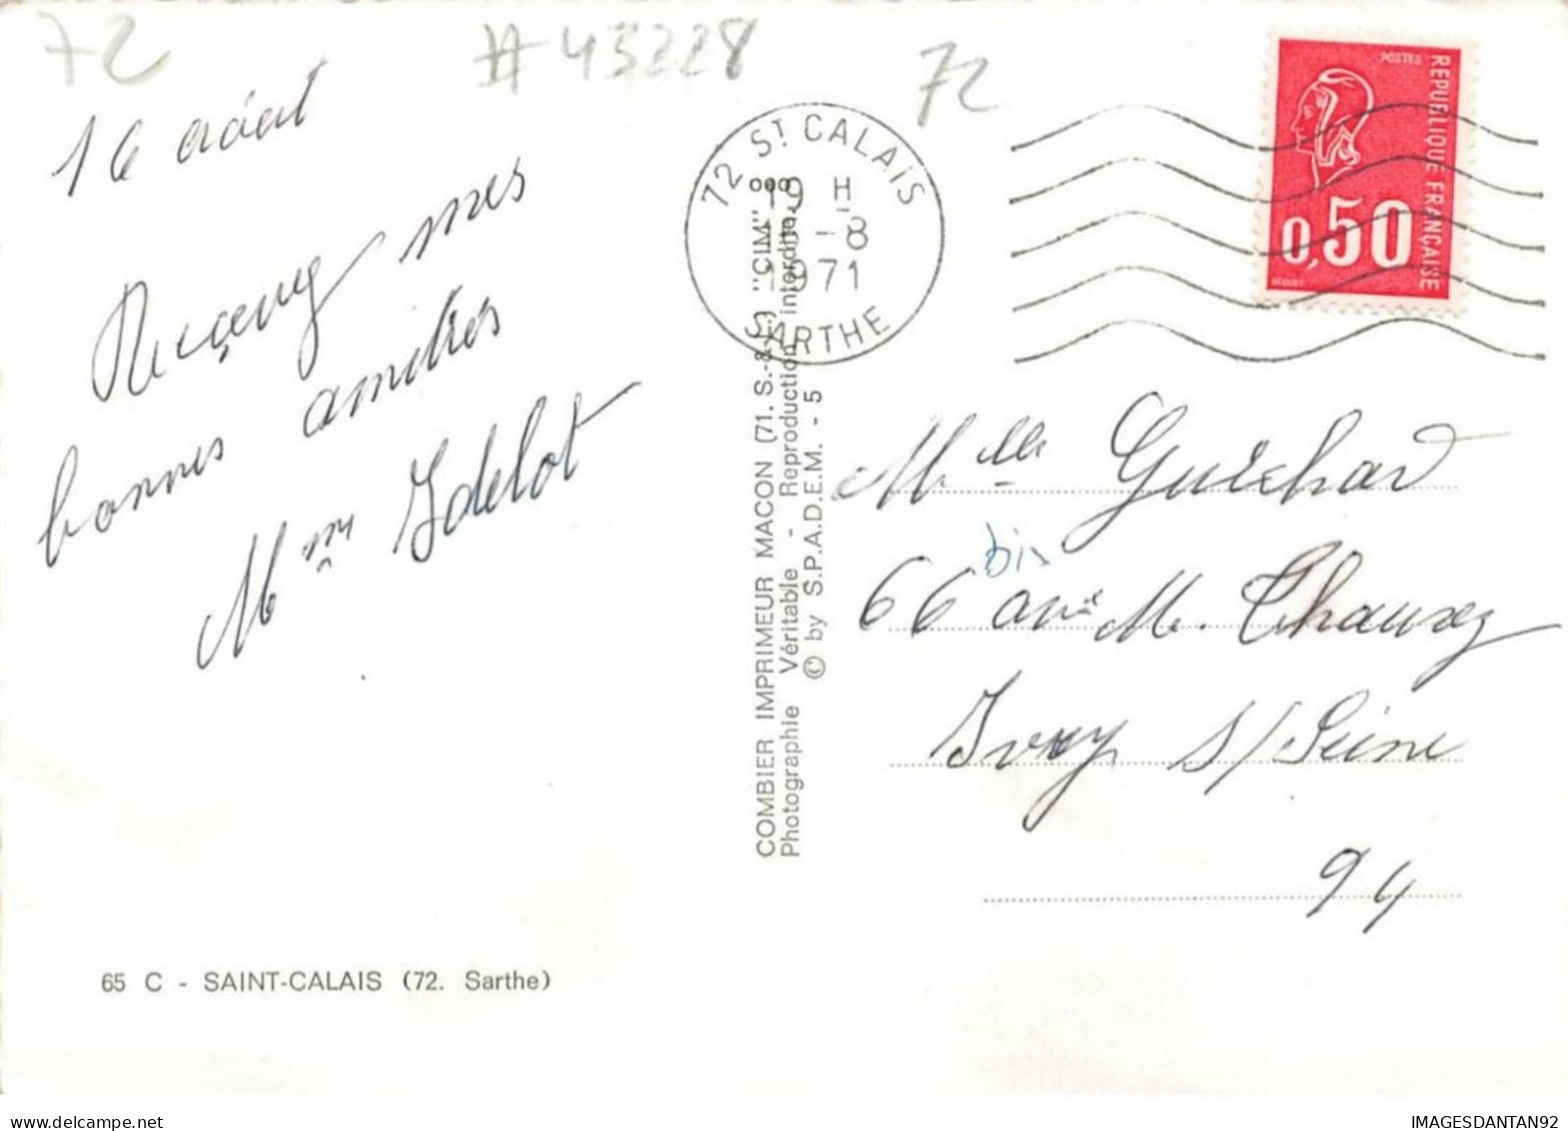 72
# 43228
72
16 août
Reçevez mes
bonnes amitiés
Mme Idelot
72 ST CALAIS
19 H
-8
1971
SARTHE
POSTES
REPUBLIQUE FRANÇAISE
0,50
COMBIER IMPRIMEUR MACON (71. S.-&-L.) "CIM"
Photographie Véritable - Reproduction interdite
© by S.P.A.D.E.M. - 5
Melle Guichard
bis
66 ave M. Thaurez
Ivry s/Seine
94
65 C - SAINT-CALAIS (72. Sarthe)
IMAGESDANTAN92